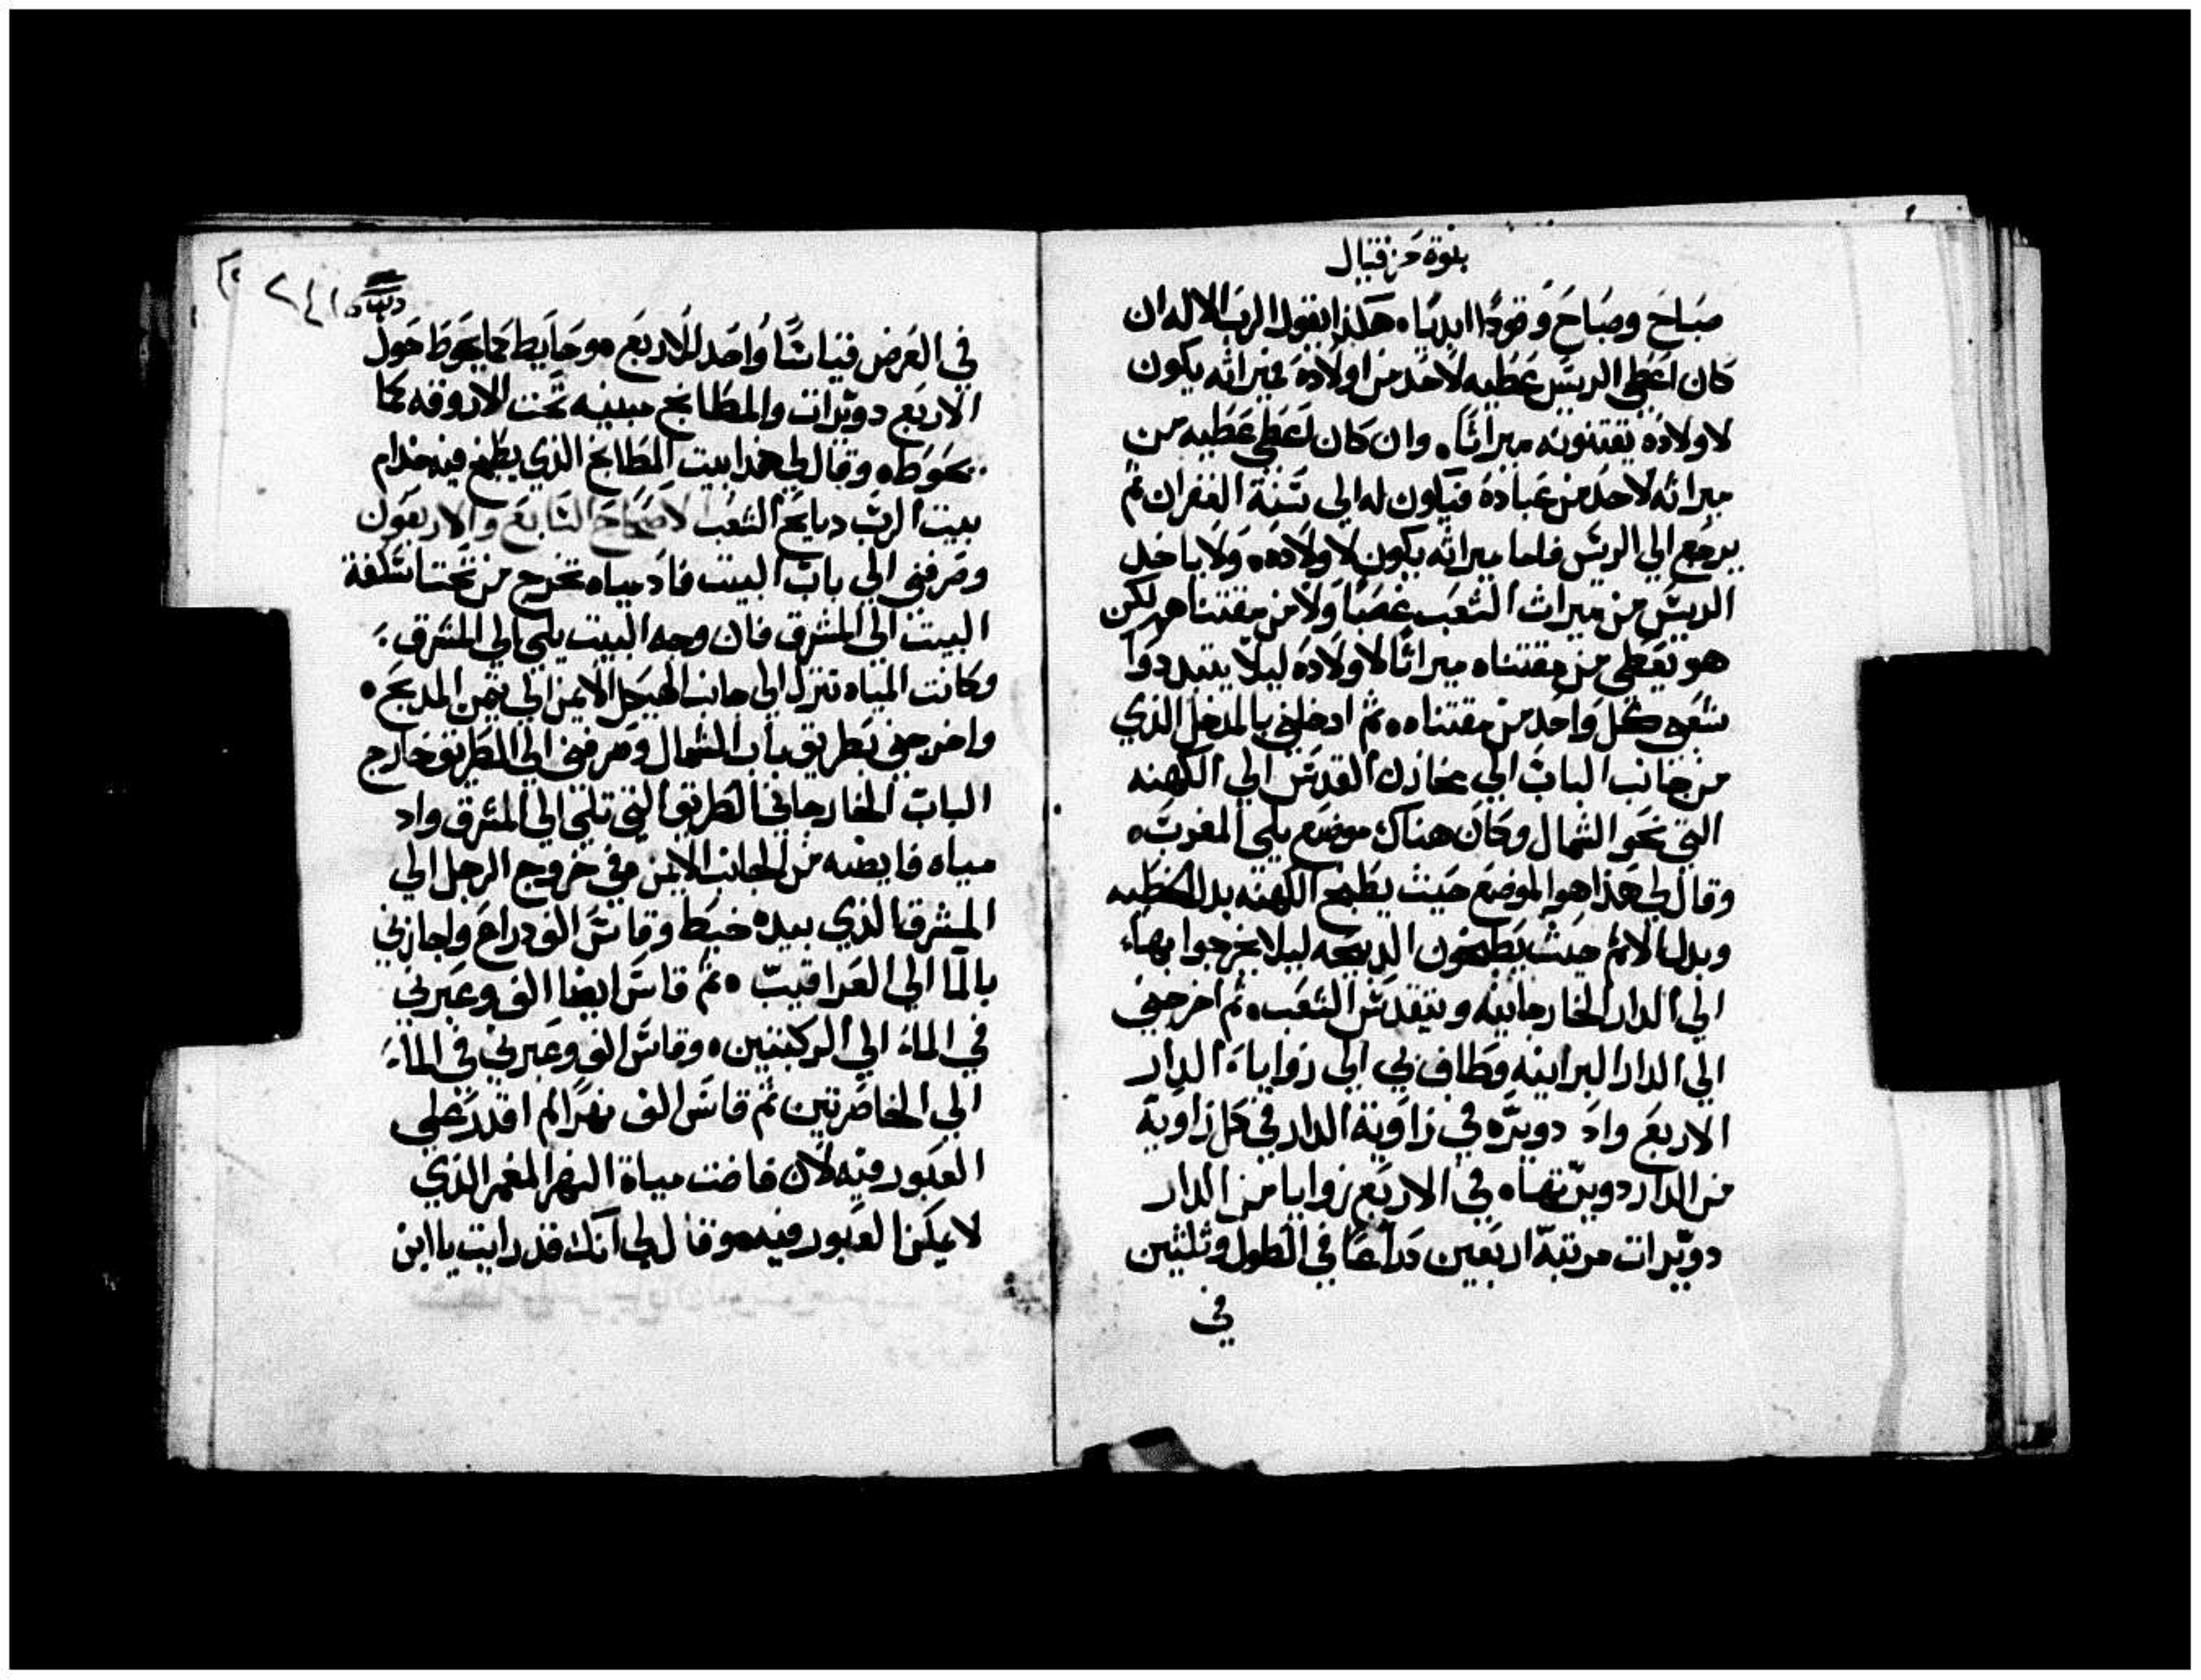 بنوة حزقيال
صباح وصباح وقودًا ابديًا ٥ هكذا يقول الرب الاله ان
كان اعطي الريس عطيه لاحد من اولاده فميراثه يكون
لاولاده يقتنونه ميراثًا ٥ وان كان اعطي عطيه من
ميراثه لاحد من عباده فيكون له الي سنة الغفران ثم
يرجع الي الريس فاما ميراثه يكون لاولاده ٥ ولا ياخد
الريس من ميراث الشعب غصبًا ولا من مقتناهم لكن
هو يعطي من مقتناه ميراثًا لاولاده ليلا يتبددوا
شعبي كل واحد من مقتناه ٥ ثم ادخلني بالمدخل الذي
من جانب الباب الي مخازن القدس الي الكهنه
التي نحو الشمال وكان هناك موضع يلي المغرب ٥
وقال لي هذا هو الموضع حيث يطبخ الكهنه بدل الخطيه
وبدل الاثم حيث يطبخون الدبيحه ليلا يخرجوا بها
الي الدار الخارجانيه ويتقدس الشعب ٥ ثم اخرجني
الي الدار البرانيه وطاف بي الي زوايا الدار
الاربع واد دويره في زاوية الدار في كل زاوية
من الدار دويرتها ٥ في الاربع زوايا من الدار
دويرات مرتبة اربعين دراعًا في الطول وثلثين
في
٢٤١
في العرض قياسًا واحد للاربع ٥ وحايط كما يحوط حول
الاربع دويرات والمطابخ مبنيه تحت الاروقه كما
يحوطه وقال لي هدا بيت المطابخ الذي يطبخ فيه خدام
بيت الرب دبايح الشعب الاصحاح السابع والاربعون
وصرفني الي باب البيت فاد مياه تخرج من تحت اسكفة
البيت الي المشرق فان وجه البيت يلي الي المشرق
وكانت المياه تنزل الي جانب الهيكل الايمن الي يمن المدبح ٥
واخرجني بطريق باب الشمال وصرفني الي الطريق خارج
الباب الخارجاني الطريق التي تلي الي المشرق واد
مياه فايضه من الجانب الايمن وفي خروج الرجل الي
المشرق الذي بيده خيط وقاس الف دراع واجازني
بالما الي العراقيب ٥ ثم قاس ايضا الف وعبرني
في الماء الي الركبتين ٥ وقاس الف وعبرني في الماء
الي الخاصرتين ثم قاس الف نهرًا لم اقدر علي
العبور فيه لان فاضت مياة النهر المغمر الذي
لا يمكن العبور فيه ٥ وقال لي انك قد رايت يا ابن